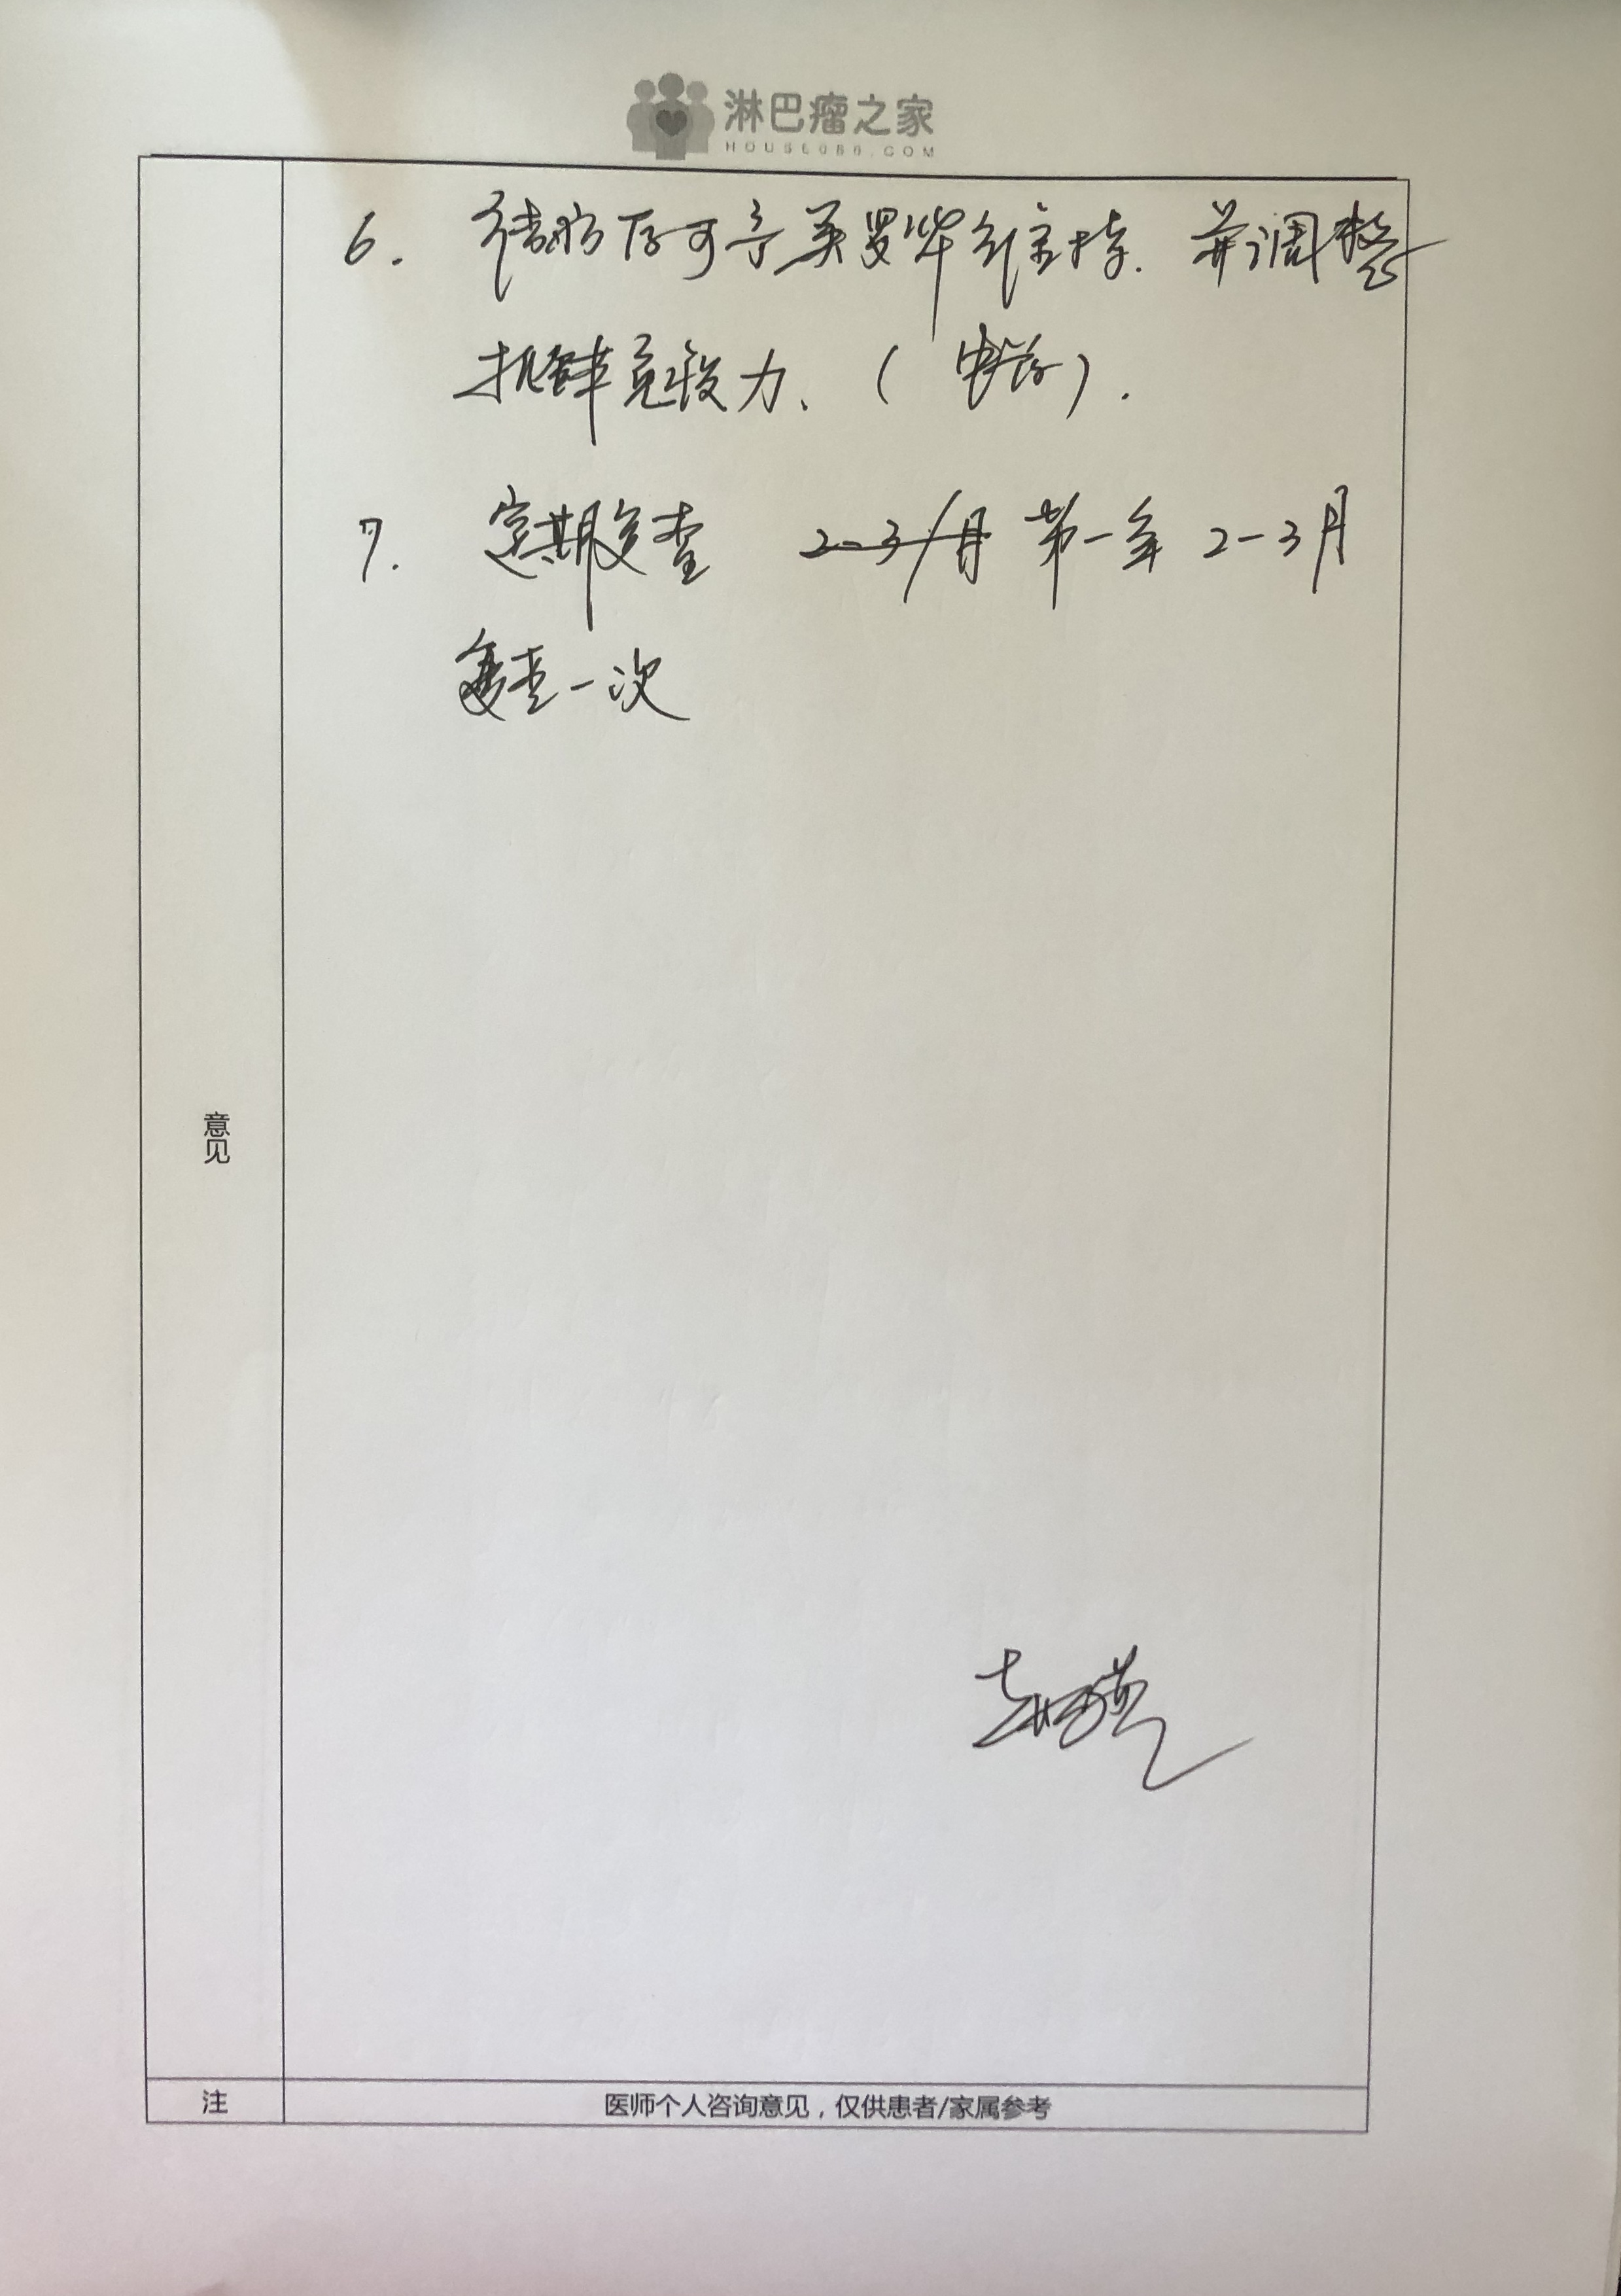 淋巴瘤之家
HOUSE086.COM
6. 结疗后可予美罗华维持. 并调整
机体免疫力、(中药).
7. 定期复查 第一年 2-3月
复查一次
意见
注 医师个人咨询意见，仅供患者/家属参考